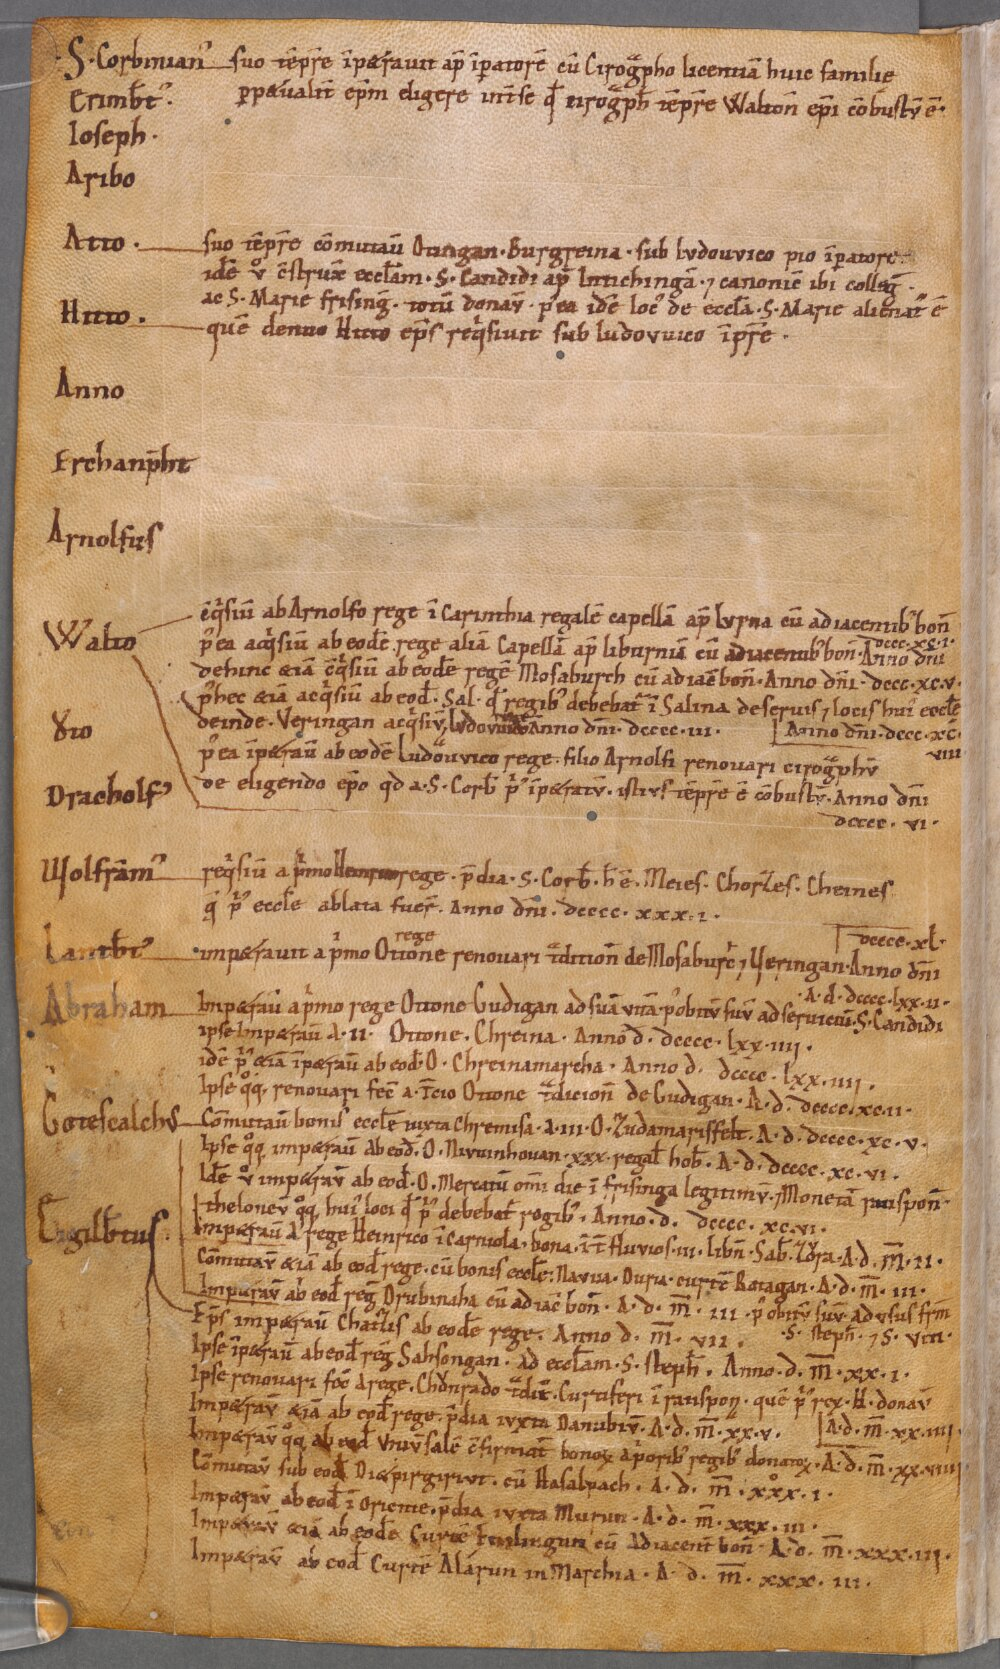 S. Corbinian᾽ suo tēp̄re īpetrauit ap̄ īpatorē cū Cirog̃pho licentiā huic familię
Erimb̄t᾽. p̱petualit̄ ep̄m eligere int̄ se q̄d cirog̃ph̄ tēp̄re Waltoñ ep̄i cōbustū ē.
Ioseph.
Aribo
Atto. suo tēp̄re cōmutaū Otingan. Burgreina. sub lvdouvico pio īp̱atore.
idē v̊ c̄strux̄ eccl̄am. S. Candidi ap̄ Intichingā. ⁊ canonic̄ ibi colleg̃.
ac S. Marie frising̃. totū donaṽ. p᾽ea idē loc᾽ de eccl̄a. S. Marie alienat᾽ ē
Hitto. quē denuo Hitto ep̄s req̇siuit sub ludovuico īp̄re.
Anno
Erchanp̄ht
Arnolfus
Walto c̄q̇siū ab Arnolfo rege ī Carinthia regalē capellā ap̄ lvrna cū adiacentib᾽ bon̄
dccc. xc. i.
p᾽ea acq̇siū ab eodē rege aliā Capellā ap̄ liburniā cū adiacentib᾽ bon̄. Anno dn̄i
dehinc &iā c̄q̇siū ab eodē regē Mosaburch cū adiac̄ bon̄. Anno dn̄i. dccc. xc. v.
p᾽hec &iā acq̇siū ab eod̄. Sal. q̄d regib᾽ debebat᾽ ī Salina de seruis ⁊ locis hui᾽ eccl̄e
Vto deinde. Veringan acq̇siṽ, lvdovvico Anno dn̄i. dcccc. iii. Anno dn̄i. dccc. xc.
viii
p᾽ea īpetraū ab eodē ludouvico rege. filio Arnolfi renouari cirog̃phū
Dracholf᾽ de eligendo ep̄o qd a. S. Corb̄ p᾽ īpetratū. istivs tēp̄re ē cōbustū. Anno dn̄i
dcccc. vi.
Wolfrām᾽ req̇siū a p̊mo Heinrico rege. p̄dia. S. Corb̄. h̄ ē. Meies. Chorzes. Cheines
q̄ p᾽ eccl̄e ablata fuer̄. Anno dn̄i. dcccc. xxx. i.
dcccc. xl.
Lamb̄t᾽ impetrauit a p̊mo Ottone rege renouari t̃ditioñ de Mosaburc̄ ⁊ Ueringan. Anno dn̄i
A. d. dcccc. lxx. ii.
Abraham Impetraū a p̊mo rege Ottone Gudigan ad suā vitā. p᾽ obitū suū ad seruiciū. S. Candidi
ipse Impetraū a. ii. Ottone. Chreina. Anno d. dcccc. lxx. iiii.
idē p᾽ &iā īpetraū ab eod̄. O. Chreinamarcha. Anno d. dcccc. lxx. iiii.
Ipse q̊q̣. renouari fec̄ a. t̄cio Ottone t̃dicion̄ de Gudigan. A. d. dcccc. xc. ii.
Gotescalchus Cōmutaū bonis eccl̄e iuxta Chremisa. a. iii. O. Zudamarisfelt. A. d. dcccc. xc. v.
Ipse q̊q impetraū ab eod̄. O. Nivuinhouan. xxx. regal̄ hob̄. A. d. dcccc. xc. vi.
Idē v̊ impetraṽ ab eod̄. O. Mercatū omī die ī frisinga legitimū. ⁊ Monetā ratispon̄.
theloneū q̊q̣ hui᾽ loci q̄d p᾽ debebat᾽ regib᾽. Anno. d. dcccc. xc. vi.
Egilb̄tus. Impetraū a rege Heinrico ī Carniola. bona. ī t̄ fluvios. iii. libn̄. Sab̄. Zora. A. d. m̄. ii.
Cōmutaṽ &iā ab eod̄ rege. cū bonis eccl̄e. Navua. Ouria. curtē Ratagan. A. d. m̄. iii.
Impetraṽ ab eod̄ reg̃ Drubinaha cū adiac̄ bon̄. A. d. m̄. iii. p᾽ obitū suū ad vsus fr̄m
S. steph̄. ⁊ S. viti.
Ep̄s impetraū Chatsis ab eodē rege. Anno d. m̄. vii.
Ipse īpetraū ab eod̄ reg̃ Sahsongan. ad eccl̄am. S. steph̄. Anno. d. m̄. xx. i.
Ipse renouari fec̄ a rege. Chǒnrado t̃dit̄. Curtiferi ī ratispon̄. quē p᾽ rex. H. donaṽ
A. d. m̄. xx. iiii.
Impetraṽ &iā ab eod̄ rege. p̄dia ivxta Danubiū. A. d. m̄. xx. v.
Impetraṽ q̊q ab eod̄ vniūsalē c̄firmat̄ bonoꝝ a p̊orib᾽ regib᾽ donatoꝝ. A. d. m̄. xx. viiii
Cōmutaṽ sub eod̄ Dietpirgirivt. cū Hasalpach. A. d. m̄. xxx. i.
Impetraṽ ab eod̄ ī oriente. p̄dia ivxta Murun. A. d. m̄. xxx. iii.
Impetraṽ &iā ab eodē Curtē cū adiacent bon̄. A. d. m̄. xxx. iii.
Impetraṽ ab eod̄ Curtē Alarun in Marchia. A. d. m̄. xxx. iii.